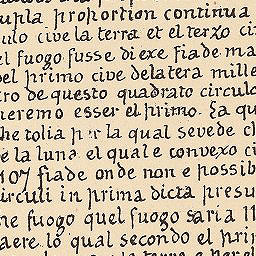 upla proportion continua
ulo cive la terra et el terzo cir
el fuogo fusse di exe fiade ma
pel primo cive dela tera mille
tro de questo quadrato circulo
ieremo esser el primo. ξa qu
he tolia per la qual se vede ch
e la luna el quale convexo ci
107 fiade onde non e possib
irculi in prima dicta presu
ne fuogo quel fuogo saria 11
aere lo qual secondo el pri